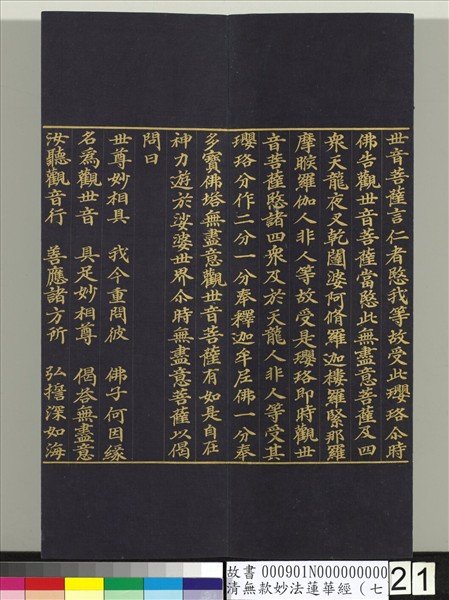 世音菩薩言仁者愍我等故受此瓔珞尒時
佛告觀世音菩薩當愍此無盡意菩薩及四
衆天龍夜叉乾闥婆阿脩羅迦樓羅緊那羅
摩睺羅伽人非人等故受是瓔珞即時觀世
音菩薩愍諸四衆及於天龍人非人等受其
瓔珞分作二分一分奉釋迦牟尼佛一分奉
多寶佛塔無盡意觀世音菩薩有如是自在
神力遊於娑婆世界尒時無盡意菩薩以偈
問曰
世尊妙相具 我今重問彼 佛子何因緣
名爲觀世音 具足妙相尊 偈荅無盡意
汝聽觀音行 善應諸方所 弘擔深如海
故書 000901N000000000
清無款妙法蓮華經（七
21